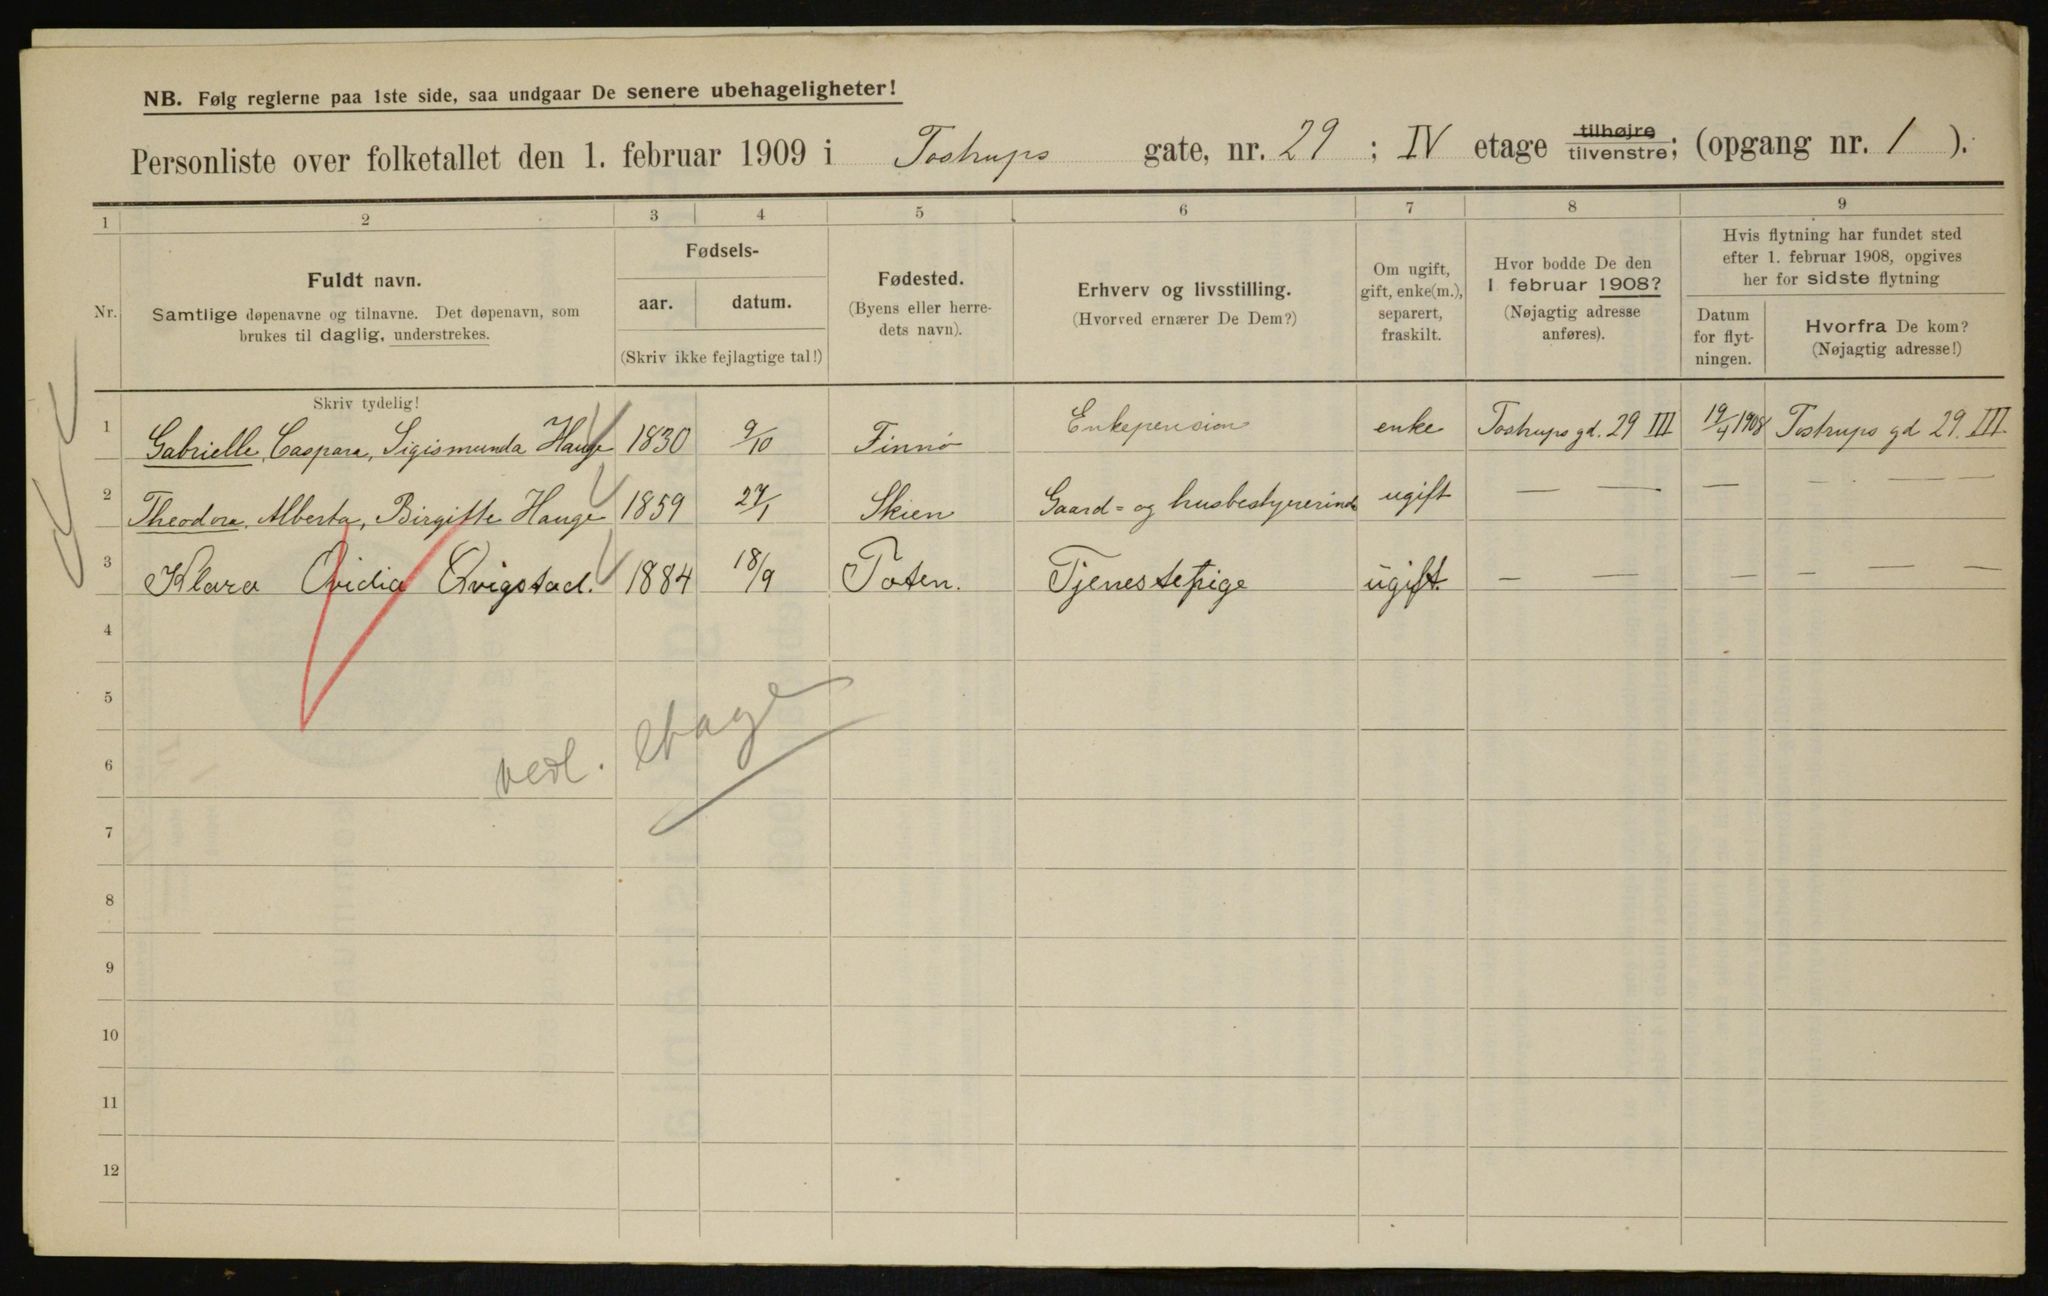 NB. Følg reglerne paa 1ste side, saa undgaar De senere ubehageligheter!
Personliste over folketallet den 1. februar 1909 i Tostrups gate, nr. 29 ; IV etage tilhøjre tilvenstre; (opgang nr. 1 ).
1 2 3 4 5 6 7 8 9
Nr.
Fuldt navn.
Samtlige døpenavne og tilnavne. Det døpenavn, som
brukes til daglig, understrekes.
Fødsels-
aar. datum.
(Skriv ikke fejlagtige tal!)
Fødested.
(Byens eller herre-
dets navn).
Erhverv og livsstilling.
(Hvorved ernærer De Dem?)
Om ugift,
gift, enke(m.),
separert,
fraskilt.
Hvor bodde De den
1 februar 1908?
(Nøjagtig adresse
anføres).
Hvis flytning har fundet sted
efter 1. februar 1908, opgives
her for sidste flytning
Datum
for flyt-
ningen.
Hvorfra De kom?
(Nøjagtig adresse!)
Skriv tydelig!
1 Gabrielle, Caspara, Sigismunda Hauge 1830 9/10 Finnø Enkepension enke Tostrups gd. 29 III 19/4 1908 Tostrups gd 29. III
2 Theodora, Alberta, Birgitte Hauge 1859 27/1 Skien Gaard- og husbestyrerinde ugift — — — — — —
3 Klara Ovidia Qvigstad. 1884 18/9 Toten. Tjenestepige ugift. — — — — — —
4
5
vedl. etage
6
7
8
9
10
11
12